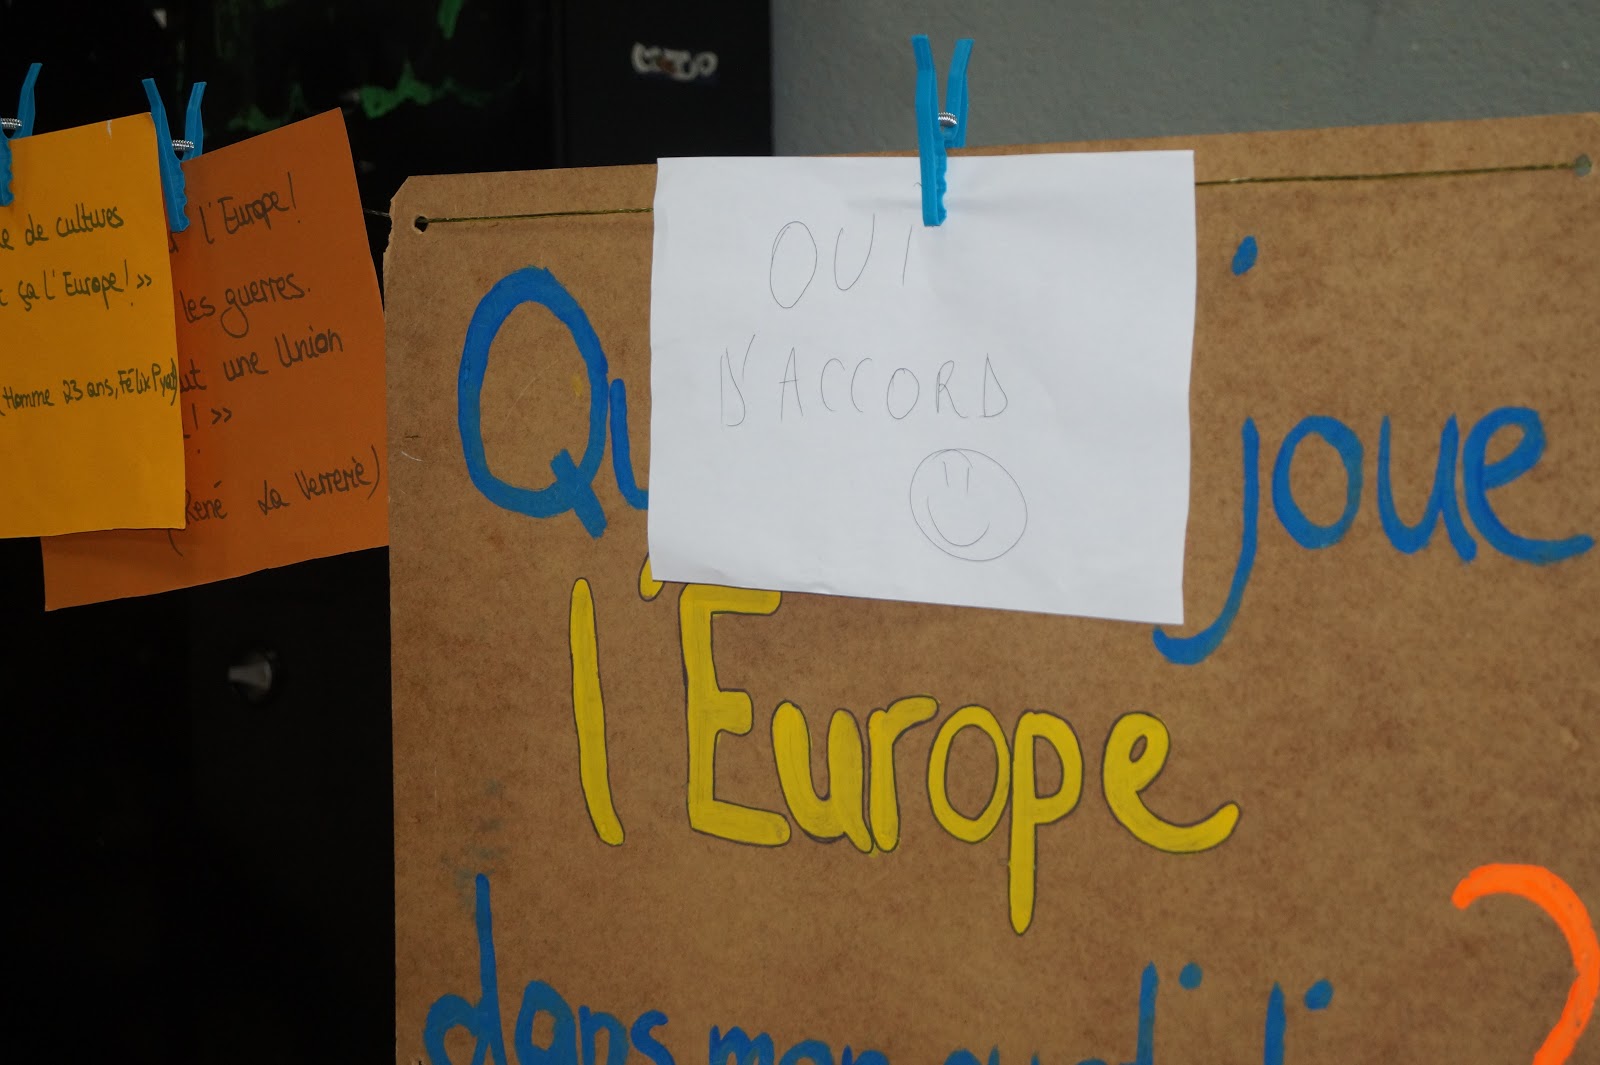 de cultures
ça l'Europe! »
(Homme 23 ans, Félix Pyat)
l'Europe!
les guerres.
une Union
! »
René La Verrerie)
OUI
D'ACCORD
joue
l'Europe
dans mon
?